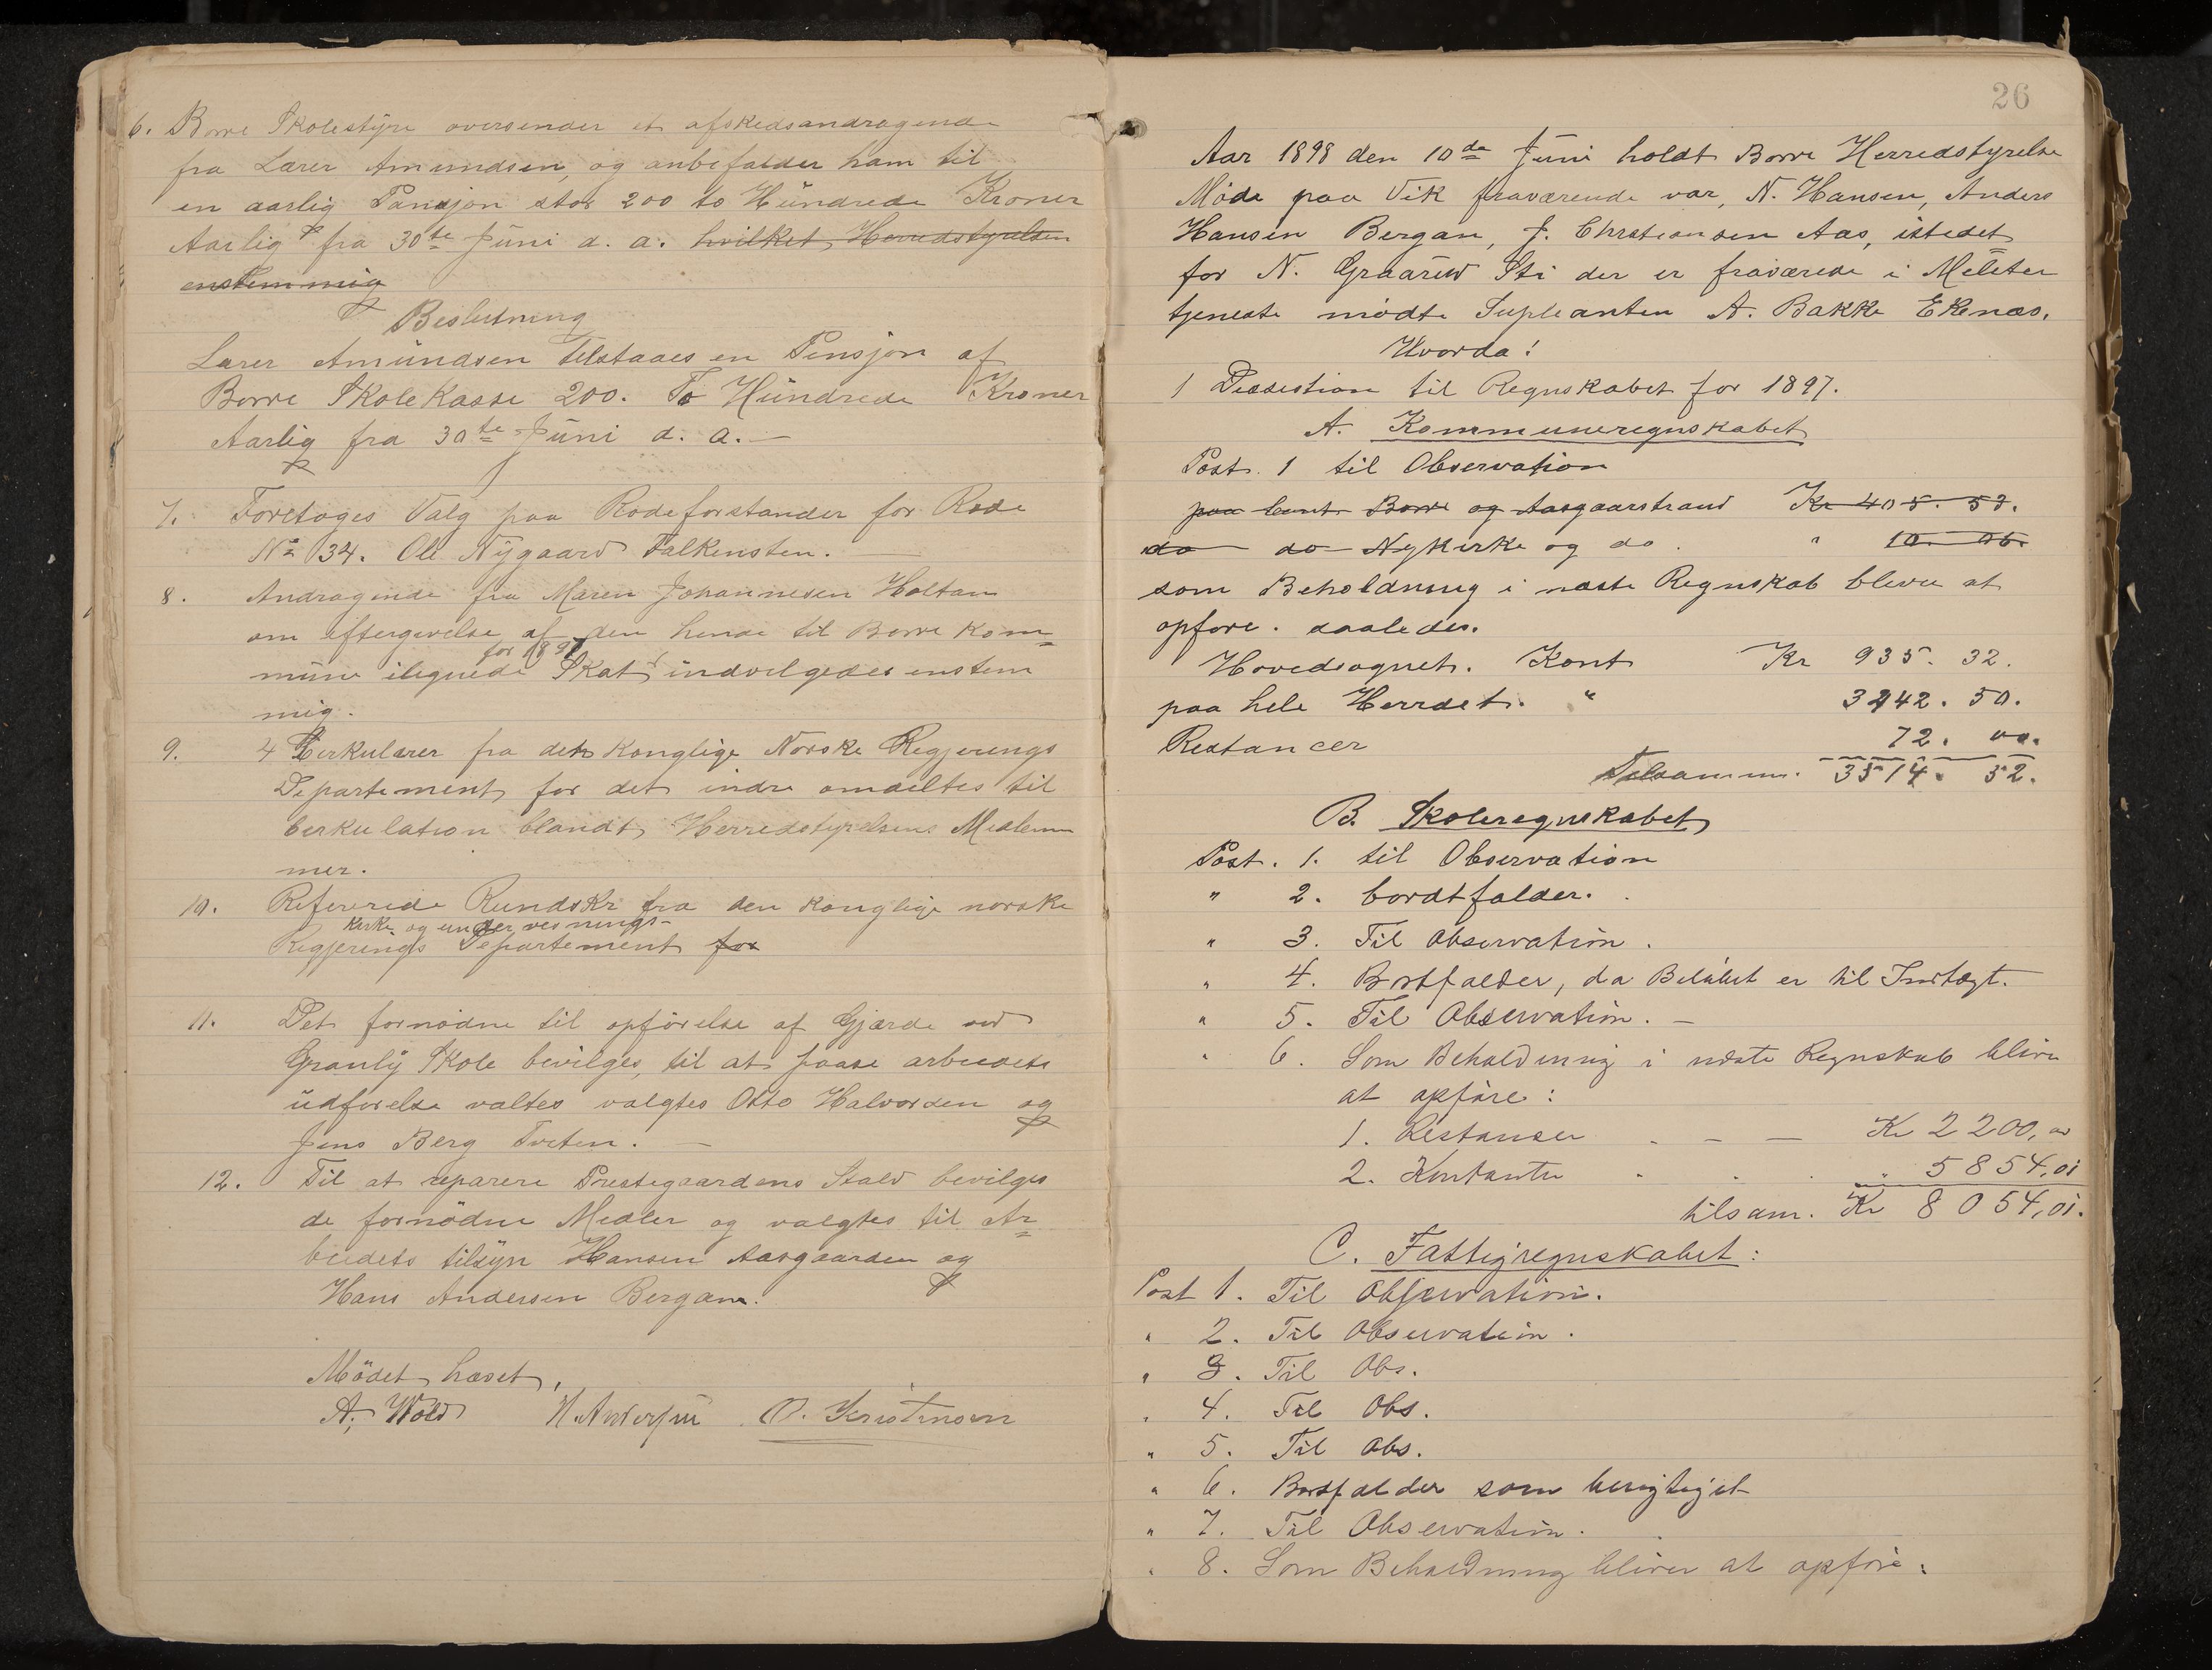 6. Borre Skolestyre oversender et afskedsandragende
fra Lærer Amundsen, og anbefalder ham til
en aarlig Pansjon stor 200 to Hundrede Kroner
Aarlig fra 30te Juni d. a. hvilket Herredstyrelsen
enstemmig
Beslutning
Lærer Amundsen Tilstaaes en Pensjon af
Borre Skolekasse 200. To Hundrede Kroner
Aarlig fra 30te Juni d. a. —
7. Foretoges Valg paa Rodeforstander for Rode
No 34. Ole Nygaard Falkensten. —
8. Andragende fra Maren Johannesen Holtan
om eftergivelse af den hende til Borre Kom=
for 1897
mune ilignede Skat indvilgedes enstem
mig.
9. 4 Cirkulærer fra det Konglige Norske Regjerings
Departement for det indre omdeltes til
Cerkulation blandt Herredstyrelsens Medlem
mer.
10. Refererede Rundskr fra den konglige norske
Kirke og undervesnings-
Regjerings Departement for
11. Det fornødne til opførelse af Gjærde ved
Granly Skole bevilges, til at paase arbeidets
udførelse valtes valgtes Otto Halvorsen og
Jens Berg Tveten. —
12. Til at reparere Prestegaardens Stald bevilges
de fornødne Medler og valgtes til Ar=
beidets tilsyn Hansen Aasgaarden og
Hans Andersen Bergan.
Mödet hævet,
A. Wold H. Andersen O. Kristensen
26
Aar 1898 den 10de Juni holdt Borre Herredstyrelse
Møde paa Vik fraværende var, N. Hansen, Anders
Hansen Bergan, J. Christiansen Aas, istedet
for N. Graarud Sti der er fraværede i Meleter
tjeneste mødte Supleanten A. Bakke Ekenæs.
Hvorda!
1 Desestion til Regnskabet for 1897.
A. Kommuneregnskabet
Post. 1 til Observation
paa Borre og Aasgaarstrand Kr 405. 53.
do do Nykirke og do. " 10. 06.
som Beholdning i næste Regnskab blive at
opføre. saaledes.
Hovedsognet. Kont Kr 935. 32.
paa hele Herrdet. " 3442. 50.
Restancer 72. 00.
Tilsammen. 3514. 52.
B. Skoleregnskabet
Post. 1. til Observation
" 2. bordtfalder.
" 3. Til Observation.
" 4. Bortfalder, da Beløbet er til Indtægt.
" 5. Til Observation. —
" 6. Som Beholdning i næste Regnskab blive
at opføre:
1. Restanser - - — Kr 2200,00
2. Kontanter " 5854,01
tilsam. Kr 8054,01.
C. Fattigregnskabet:
Post 1. Til Observation.
" 2. Til Observation.
" 3. Til Obs.
" 4. Til Obs.
" 5. Til Obs.
" 6. Bortfalder som berigtiget
" 7. Til Observation.
" 8. Som Beholdning bliver at opføre: